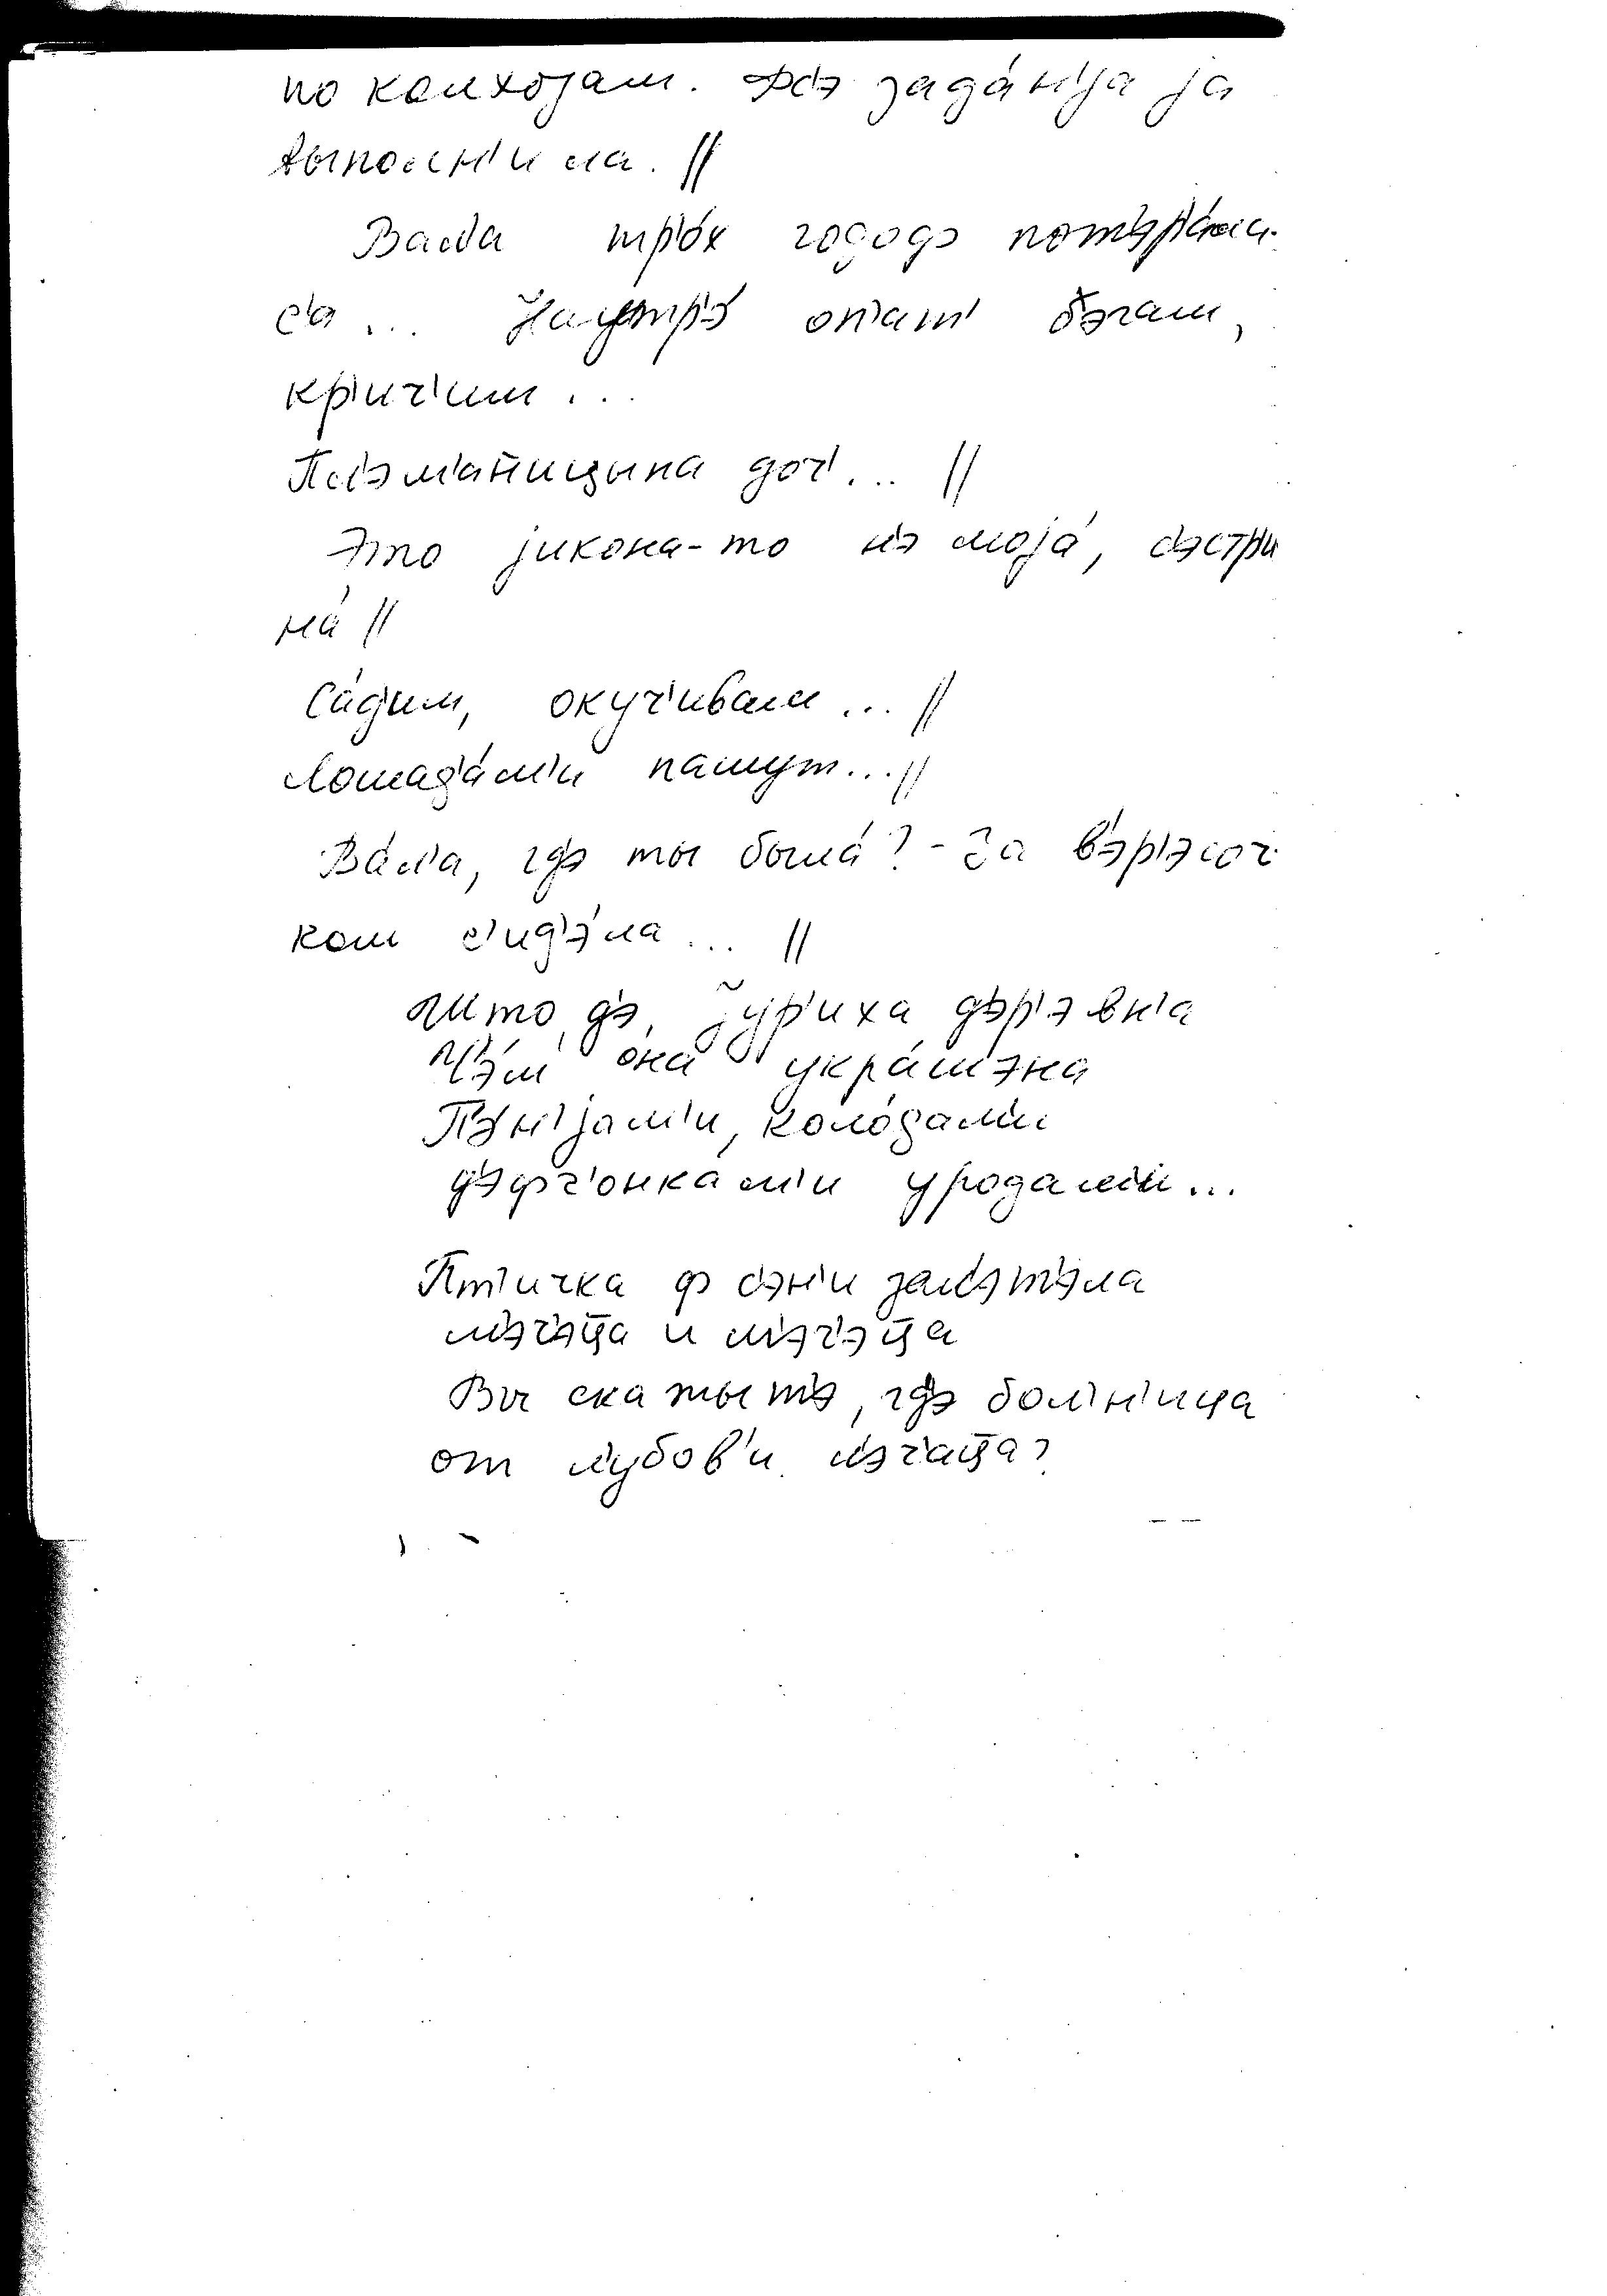 по колхозам. Фс'э зада́н'иjа ja
выполн'ила. //
Вал'а тр'о́х гододэ пот'эр'а́ла-
с'а ... Наутр'э́ оп'ат' б'эгам,
кр'ич'им ...
Пл'эм'а́н'ицына доч'... //
Это jикона-то н'э моjа́, с'эстр'и
на́ //
Са́д'им, окуч'ивам ... //
Лошад'а́м'и пашут...//
Ва́л'а, гд'э ты была́? - За в'эр'эсоч-
ком с'ид'э́ла ... //
Што д'э, Зур'иха д'эр'эвн'а
Ч'э́м она украшэна
П'эн'jам'и, коло́дам'и
д'эфч'онкам'и уродам'и...
Пт'ичка ф с'эн'и зал'эт'эла
м'эч'эца и м'эч'эца
Вы скажыт'э, гд'э бол'н'ица
от л'убов'и л'эч'аца?